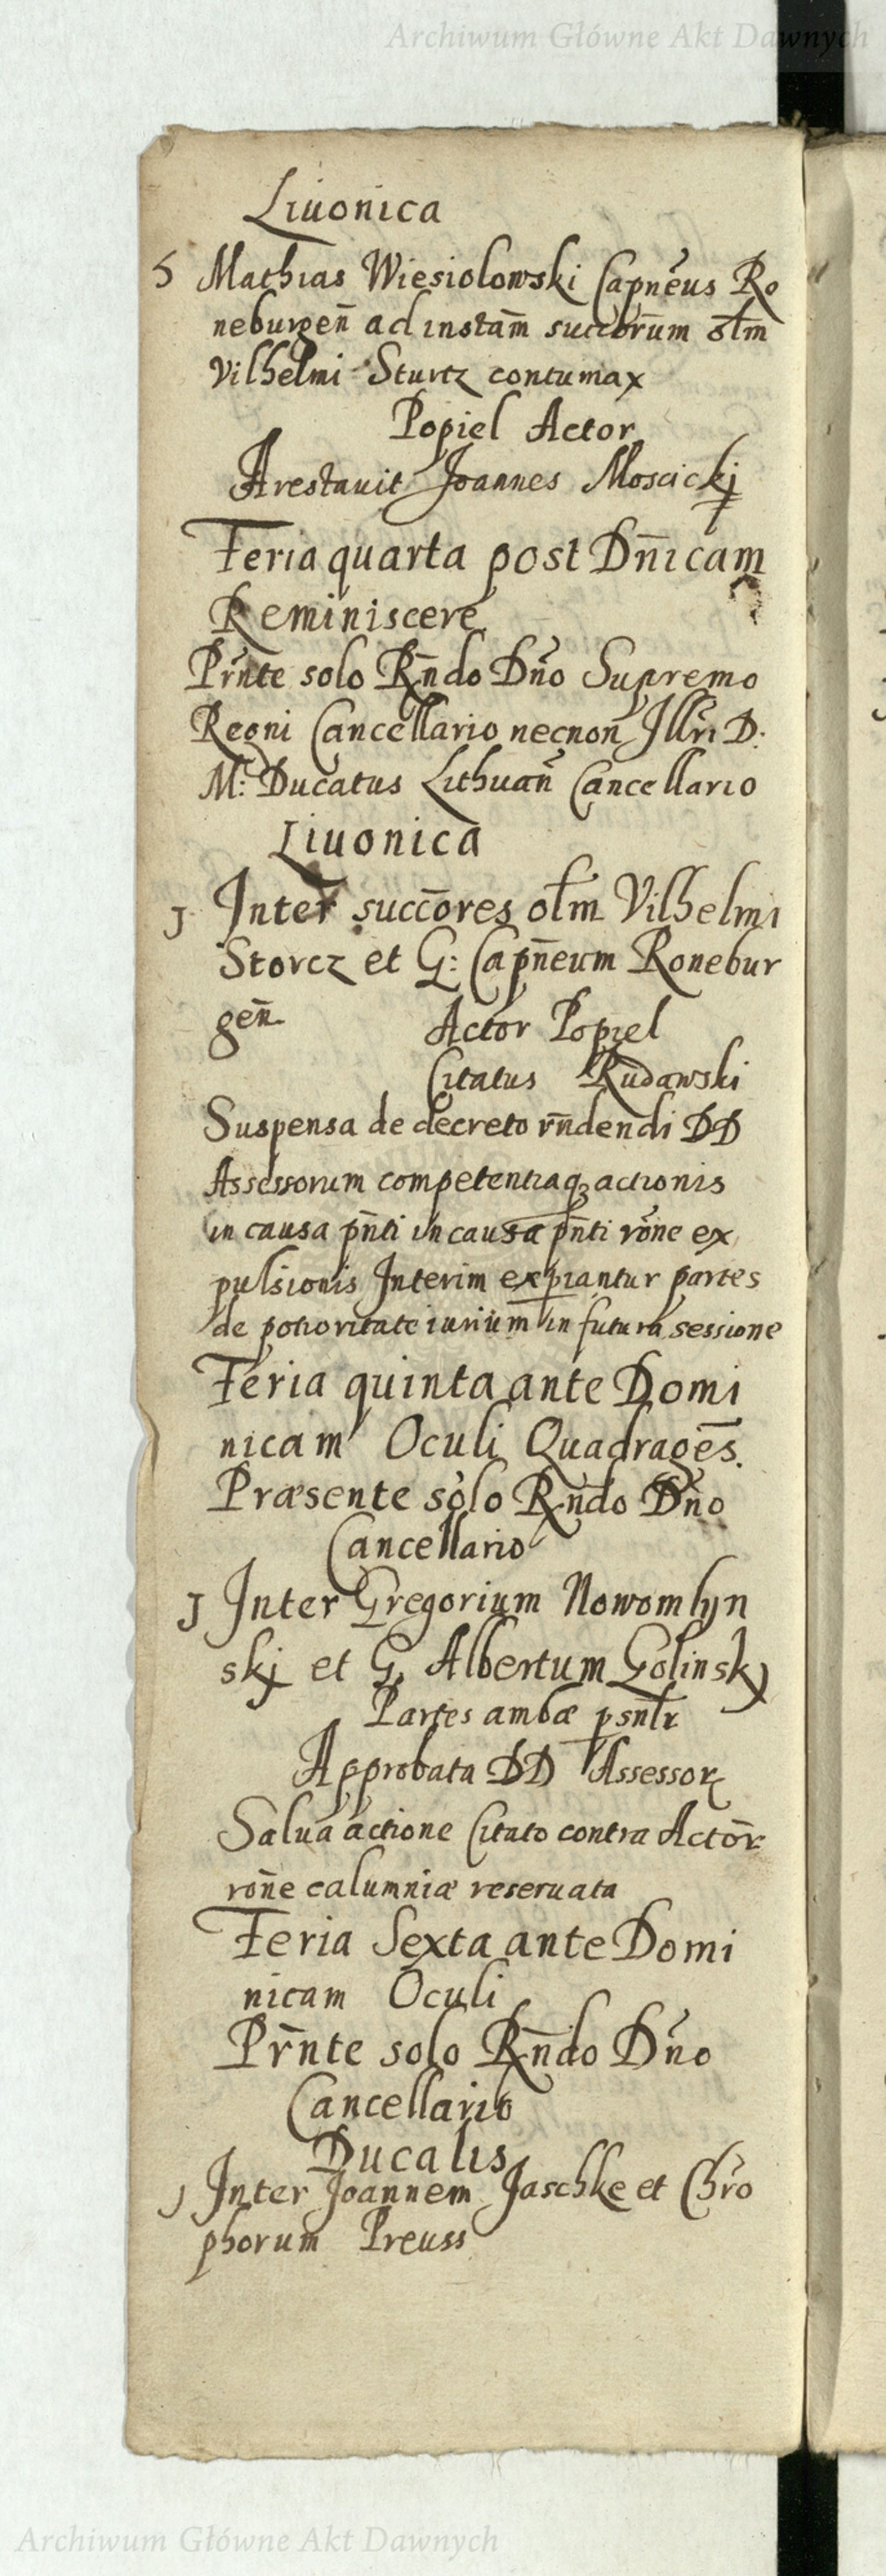 Archiwum Główne Akt Dawnych
Liuonica
5 Mathias Wiesiolowski Capn̄eus Ro
neburgen̄ ad instam̄ succorūm olīm
Vilhelmi Sturtz contumax
Popiel Actor
Arestauit Joannes Moscickj
Feria quarta post Dn̄icam
Reminiscere
Prn̄te solo Rn̄do Dn̄o Supremo
Regni Cancellario necnon Illrī D:
M: Ducatus Lithuan̄ Cancellario
Liuonica
J Inter succōres olīm Vilhelmi
Storcz et G: Capn̄eum Ronebur
gen̄ Actor Popiel
Citatus Rudawski
Suspensa de decreto rn̄dendi DD
Assessorum competentiaqꝫ actionis
in causa pn̄ti in causa pn̄ti rōne ex
pulsionis Interim expiantur partes
de potioritate iurium in futura sessione
Feria quinta ante Domi
nicam Oculi Quadragēs.
Præsente solo Rn̄do Dn̄o
Cancellario
J Inter Gregorium Nowomlyn
skj et G. Albertum Golinskj
Partes ambæ psntr̄
Approbata DD Assessoꝝ
Salua actione Citato contra Actōr
rōne calumniæ reseruata
Feria Sexta ante Domi
nicam Oculi
Prn̄te solo Rn̄do Dn̄o
Cancellario
Ducalis
J Inter Joannem Jaschke et Chrō
phorum Preuss
Archiwum Główne Akt Dawnych